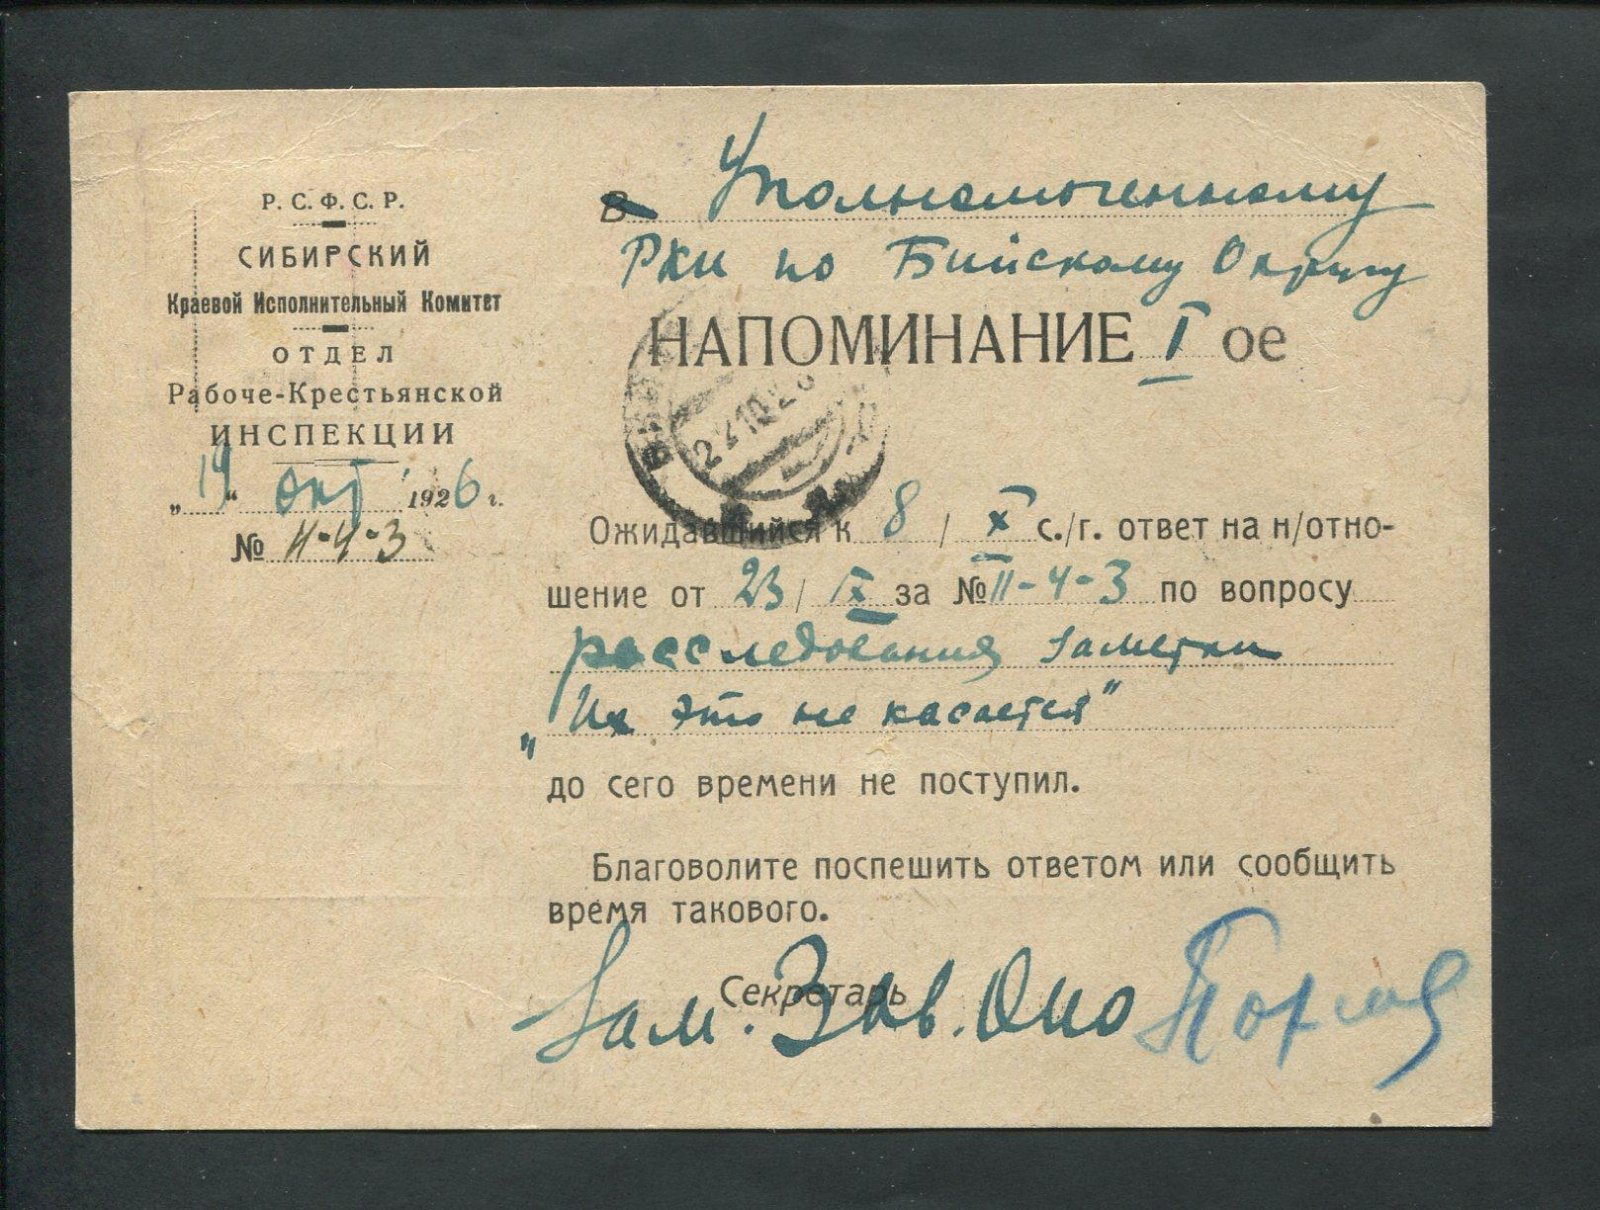 Р. С. Ф. С. Р.
СИБИРСКИЙ
Краевой Исполнительный Комитет
ОТДЕЛ
Рабоче-Крестьянской
ИНСПЕКЦИИ
„19“ окт 1926 г.
№ II-4-3
В Уполномоченному
РКИ по Бийскому Округу
НАПОМИНАНИЕ I ое
22.10.26
Ожидавшийся к 8 / X с./г. ответ на н/отно-
шение от 23 / IX за № II-4-3 по вопросу
расследования заметки
„Их это не касается"
до сего времени не поступил.
Благоволите поспешить ответом или сообщить
время такового.
Секретарь
Зам. Зав.